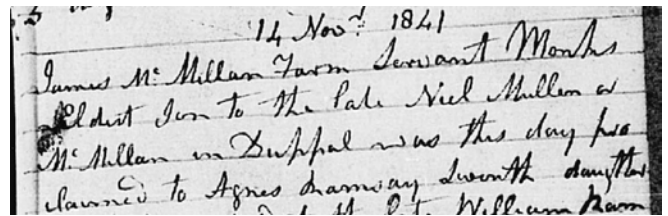 14 Novr 1841
James Mc Millan Farm Servant Monks
Eldest Son to the late Niel Mullen or
Mc Millan in Duppal was this day pro
claimed to Agnes Ramsay Seventh daughter
the late William Ram